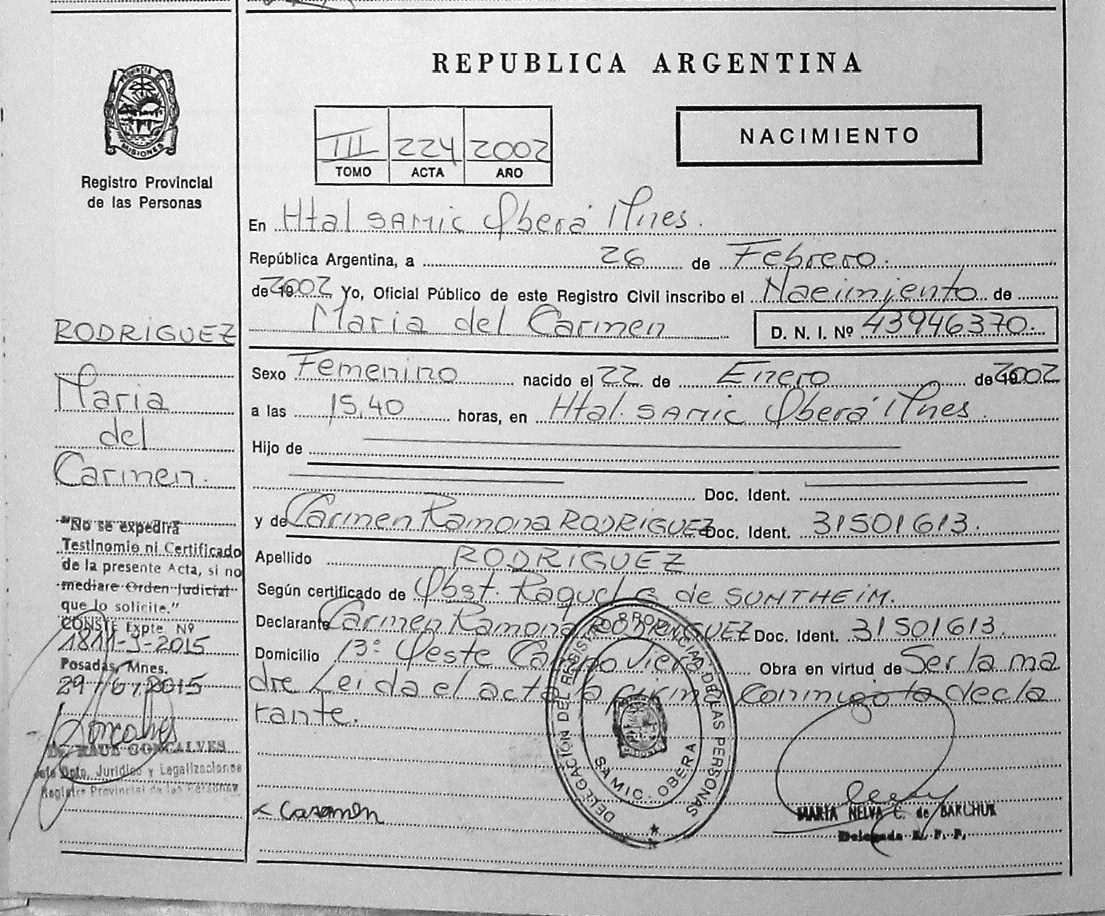 PROVINCIA DE
MISIONES
Registro Provincial
de las Personas
RODRIGUEZ
Maria
del
Carmen.
"No se expedirá
Testinomio ni Certificado
de la presente Acta, si no
mediare Orden Judicial
que lo solicite."
CONSTE Expte. Nº
1811-J-2015
Posadas, Mnes.
29/01/2015
Dr. RAUL GONCALVES
Jefe Dpto. Jurídico y Legalizaciones
Registro Provincial de las Personas
REPUBLICA ARGENTINA
III 224 2002
TOMO ACTA AÑO
NACIMIENTO
En Htal SAMIC Oberá Mnes.
República Argentina, a 26 de Febrero.
de 2002 Yo, Oficial Público de este Registro Civil inscribo el Nacimiento de
Maria del Carmen D. N. I. Nº 43946370.
Sexo Femenino nacido el 22 de Enero de 2002
a las 15,40 horas, en Htal. SAMIC Oberá Mnes.
Hijo de
Doc. Ident.
y de Carmen Ramona RODRIGUEZ Doc. Ident. 31501613.
Apellido RODRIGUEZ
Según certificado de Obst. Raquel de SUNTHEIM.
Declarante Carmen Ramona RODRIGUEZ Doc. Ident. 31501613.
Domicilio 13º Oeste Camino Viera Obra en virtud de Ser la ma
dre Leida el acta la firma Conmigo la decla
rante.
DELEGACIÓN DEL REGISTRO PROVINCIAL DE LAS PERSONAS
SAMIC. OBERA
Carmen
MARÍA NELVA C. de BARCHUK
Delegada R. P. P.